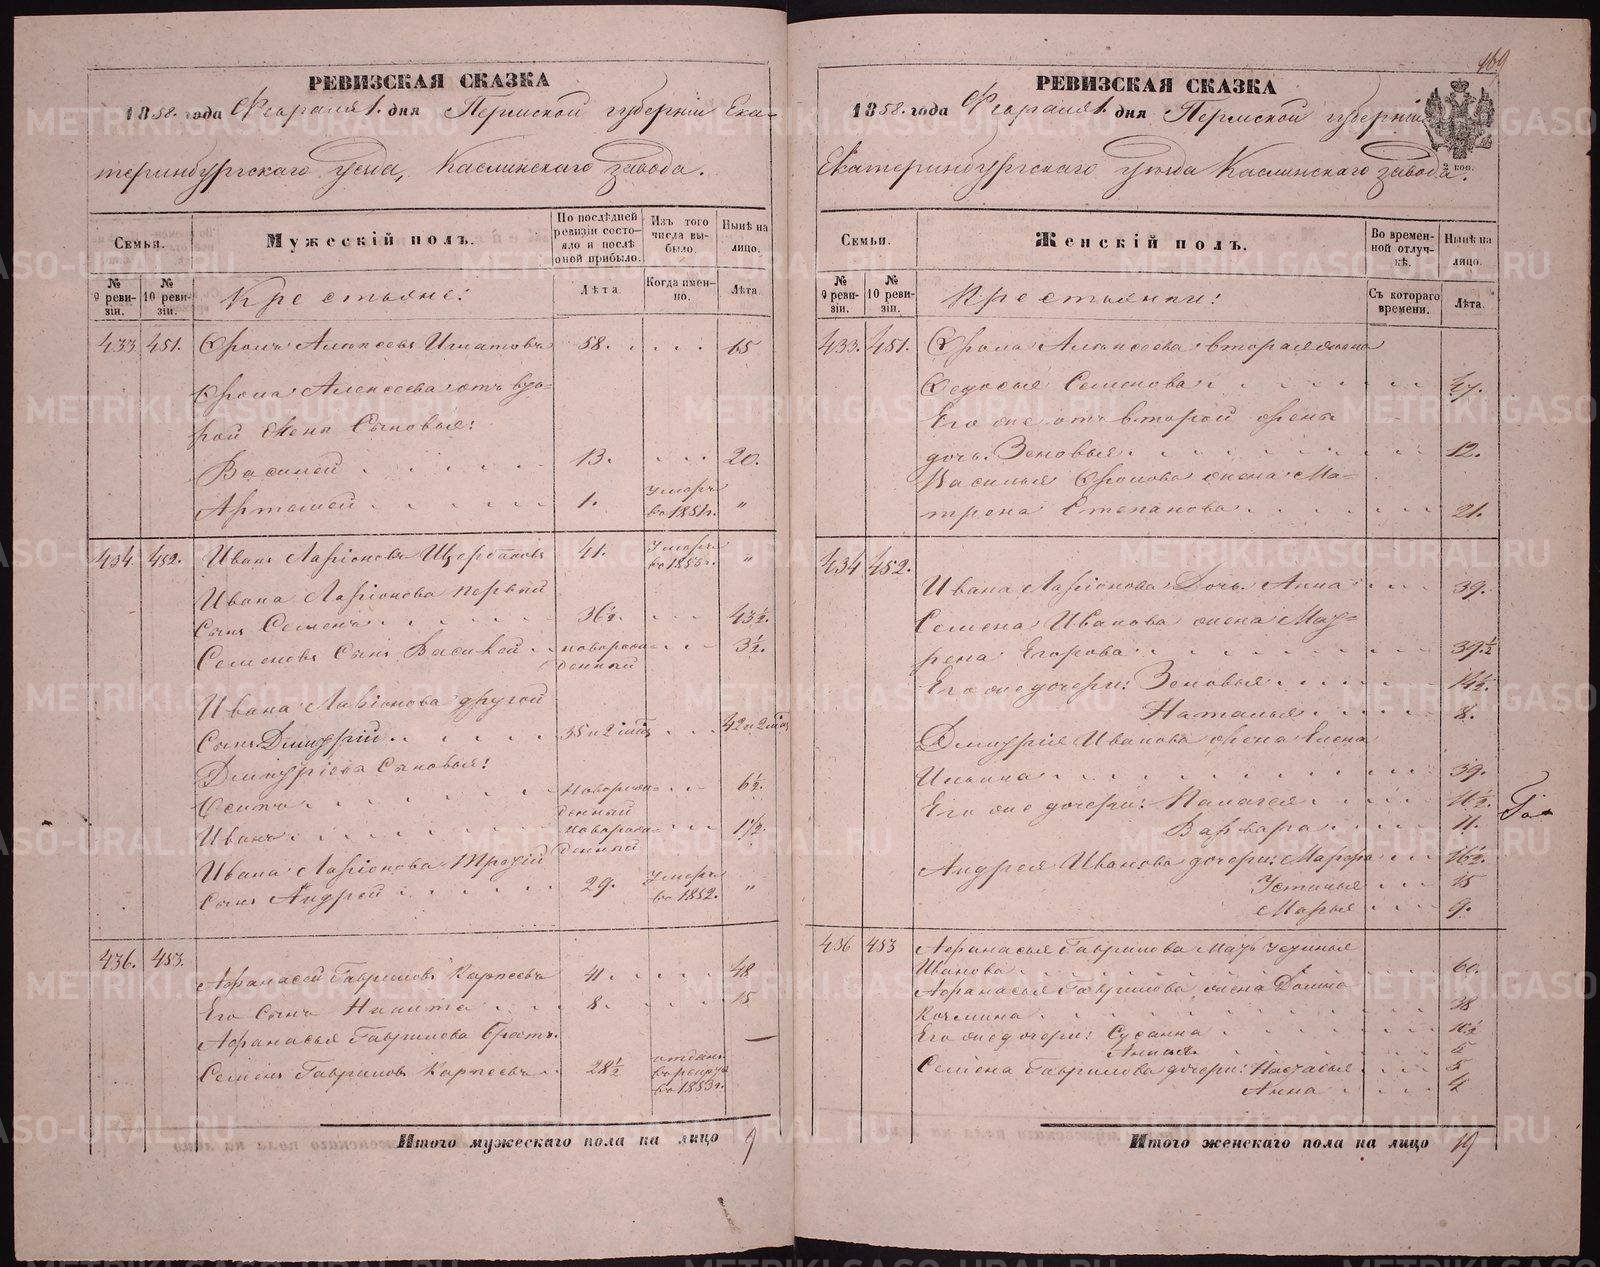 РЕВИЗСКАЯ СКАЗКА
1858. года Февраля 1. дня Пермской губерніи Ека-
теринбургскаго уезда, Каслинскаго завода.
Семьи.
Мужескій полъ.
По послѣдней ревизіи состояло и послѣ оной прибыло.
Изъ того числа выбыло.
Нынѣ на лицо.
№ 9 ревизіи.
№ 10 ревизіи.
Крестьяне:
Лѣта.
Когда именно.
Лѣта.
433. 451. Фролъ Алексеевъ Игнатовъ 58. 65
Фрола Алексеева отъ вто-
рой жены Сыновья:
Василей 13. 20.
Арталей 1. Умеръ во 1851г. "
434. 452. Иванъ Ларіоновъ Щербаковъ 41. Умеръ во 1855г. "
Ивана Ларіонова первый
Сынъ Семенъ 36½. 43½.
Семеновъ Сынъ Василей новорожденный 3½.
Ивана Ларіонова другой
Сынъ Дмитрій 35 и 2 42 и 2
Дмитріевы Сыновья:
новорожденный 6½.
Иванъ новорожденный 1½.
Ивана Ларіонова Третій
Сынъ Андрей 29. Умеръ во 1852. "
436. 453. Афанасей Гавриловъ Карпеевъ 41. 48
Его Сынъ Никита 8. 15
Афанасья Гаврилова братъ
Семенъ Гавриловъ Карпеевъ 28½ отданъ в рекруты во 1853г. —
Итого мужескаго пола на лицо 9
169
РЕВИЗСКАЯ СКАЗКА
1858. года Февраля 1. дня Пермской губерніи
Екатеринбургскаго уѣзда Каслинскаго завода.
2 коп.
Семьи.
Женскій полъ.
Во временной отлучкѣ.
Нынѣ на лицо.
№ 9 ревизіи.
№ 10 ревизіи.
Крестьянки:
Съ котораго времени.
Лѣта.
433. 451. Фрола Алексеева вторая жена
Федосья Семенова 47.
Его же отъ второй жены
дочь Зеновья 12.
Василья Фролова жена Ма-
трена Степанова 21.
434 452. Ивана Ларіонова Дочь Анна 39.
Семена Иванова жена Мат-
рена Егорова 39½
Его же дочери: Зеновья 14½.
Наталья 8.
Дмитрія Иванова жена Елена
Ильина 39.
Его же дочери: Палагея
Варвара 11.
Андрея Иванова дочери: Марфа 16½.
Устинья 15
Марья 9.
436 453 Афанасья Гаврилова Мать Устинья
Иванова 60.
Афанасья Гаврилова жена Домна
Козмина 38
Его же дочери: Сусанна 10½
Анисья 5
Семена Гаврилова дочери: Настасья 5
Анна 4
Итого женскаго пола на лицо 19
METRIKI.GASO-URAL.RU